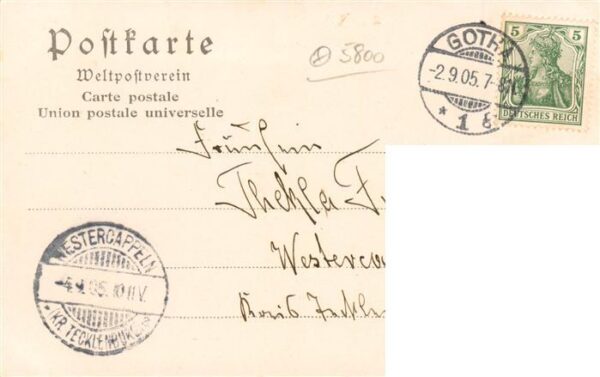 Postkarte
Weltpostverein
Carte postale
Union postale universelle
5800
GOTHA
-2.9.05.7-8
* 1
5 5
DEUTSCHES REICH
Fräulein
Thekla
Kreis
WESTERCAPPELN
-4.9.05.10-11V.
* (KR. TECKLENBURG) *